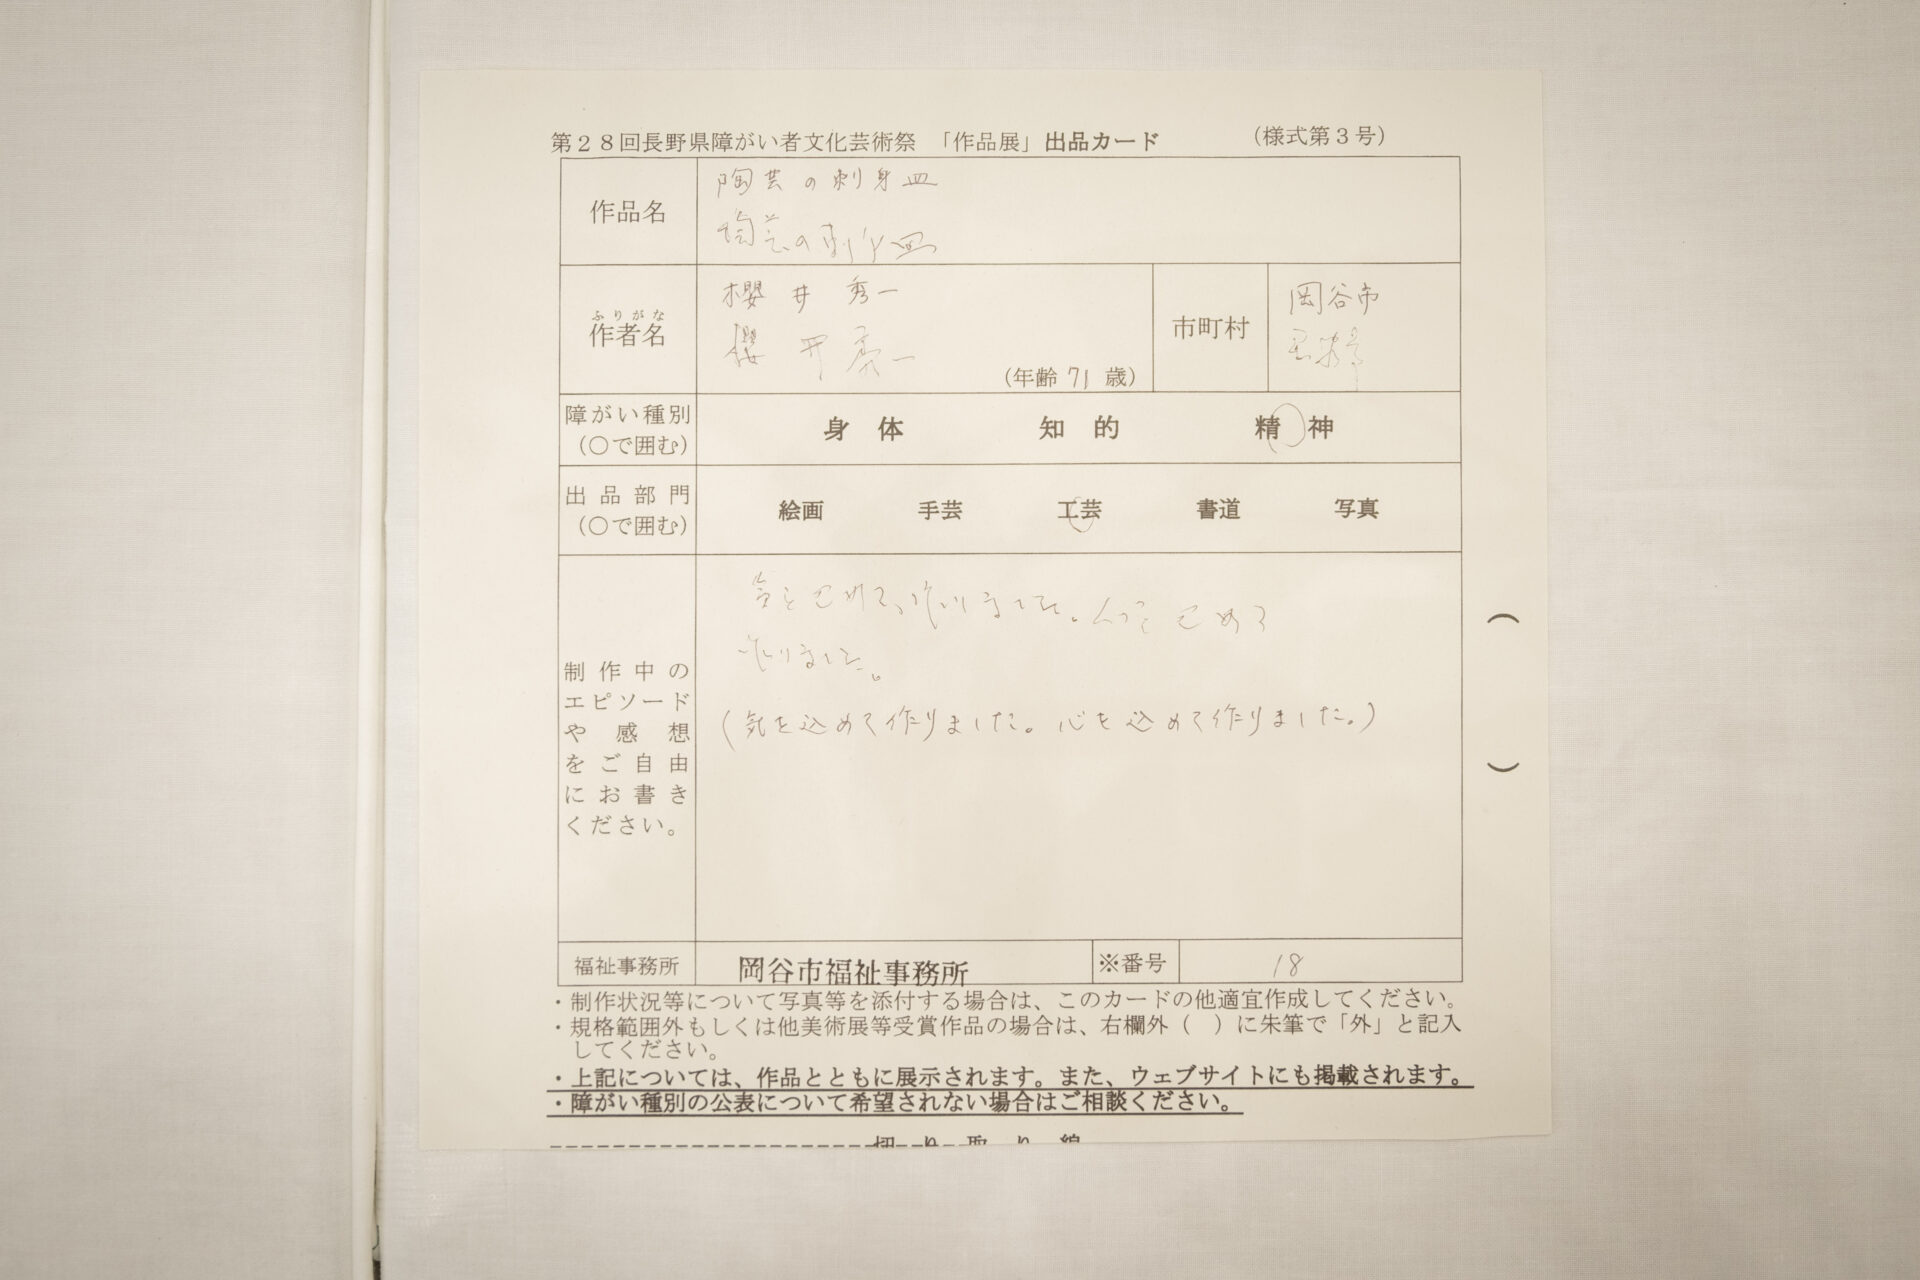 第28回長野県障がい者文化芸術祭 「作品展」出品カード (様式第3号)
作品名
陶芸の刺身皿
陶芸の刺身皿
ふりがな
作者名
櫻井 秀一
櫻井 秀一
(年齢 71 歳)
市町村
岡谷市
障がい種別
(○で囲む)
身体 知的 精神
出品部門
(○で囲む)
絵画 手芸 工芸 書道 写真
制作中の
エピソード
や感想
をご自由
にお書き
ください。
気を込めて、作りました。心をこめて
作りました。
(気を込めて作りました。心を込めて作りました。)
福祉事務所 岡谷市福祉事務所 ※番号 18
・制作状況等について写真等を添付する場合は、このカードの他適宜作成してください。
・規格範囲外もしくは他美術展等受賞作品の場合は、右欄外( )に朱筆で「外」と記入
してください。
・上記については、作品とともに展示されます。また、ウェブサイトにも掲載されます。
・障がい種別の公表について希望されない場合はご相談ください。
切り取り線